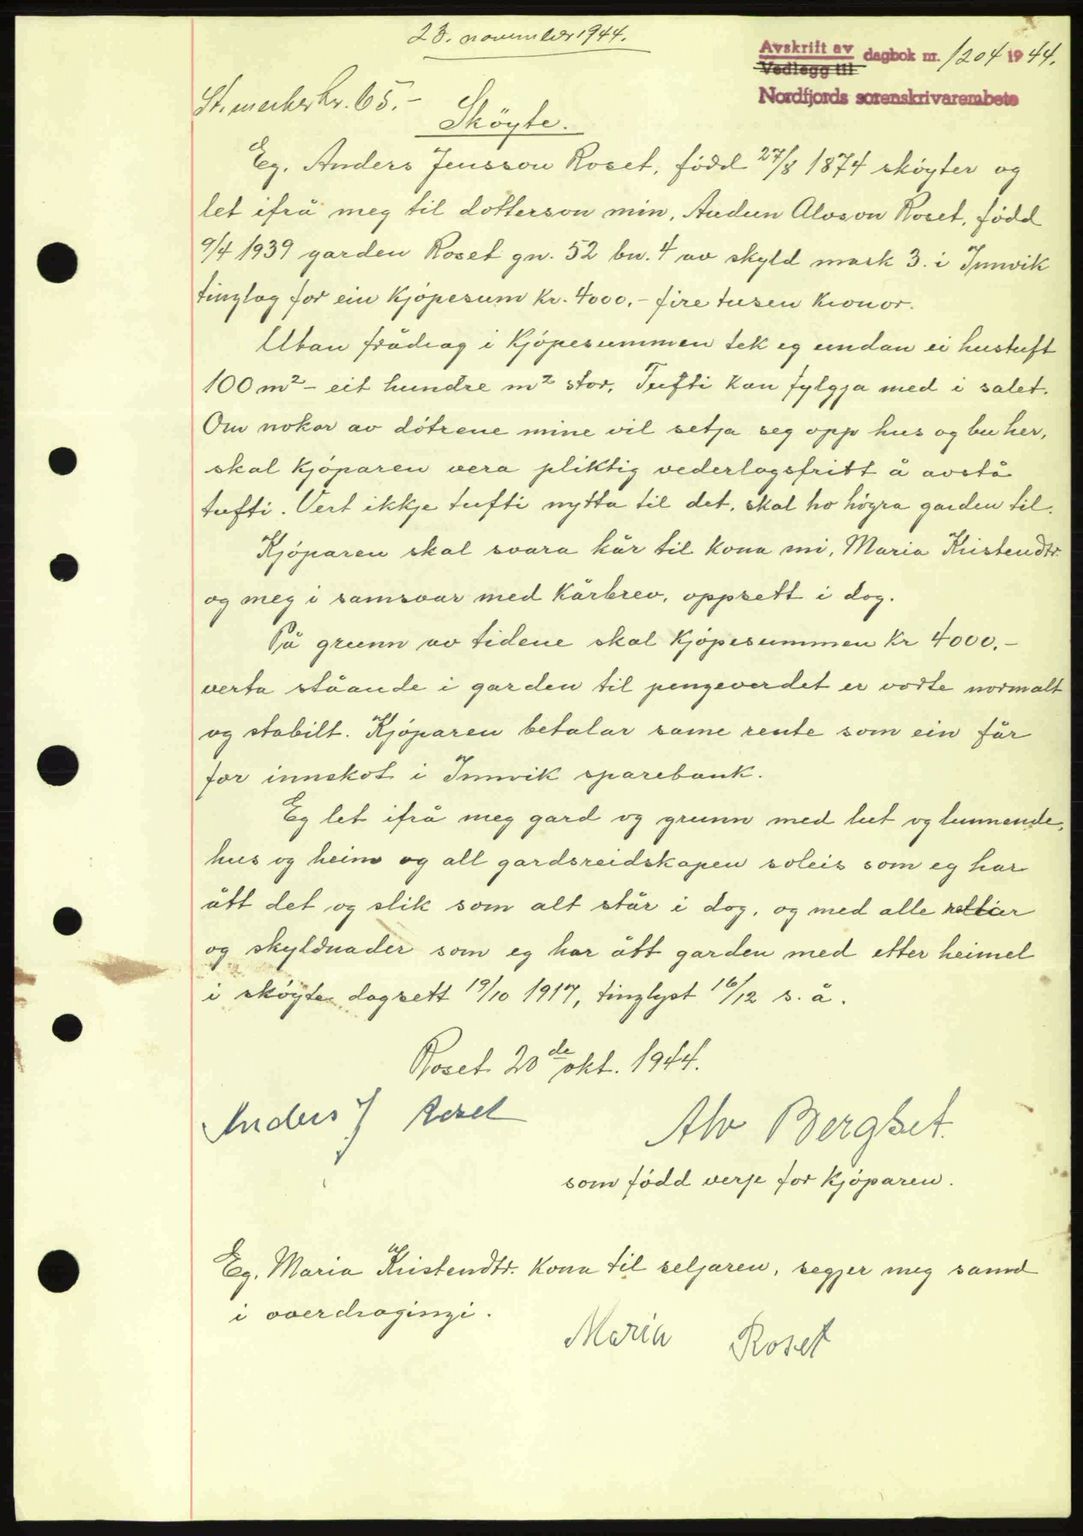 23. november 1944.
Avskrift av
Vedlegg til
dagbok nr. 1204 1944.
Nordfjords sorenskrivarembete
St.merke kr. 65.-
Skøyte.
Eg, Anders Jensson Roset, fødd 27/8 1874 skøyter og
let ifrå meg til dotterson min, Audun Alvson Roset, fødd
9/4 1939 garden Roset gn. 52 bn. 4 av skyld mark 3. i Innvik
tinglag for ein kjøpesum kr. 4000.- fire tusen kronor.
Utan frådrag i kjøpesummen tek eg undan ei hustuft
100 m² - eit hundre m² stor. Tufti kan fylgja med i salet.
Om nokor av døtrene mine vil setja seg opp hus og bu her,
skal kjøparen vera pliktig vederlagsfritt å avstå
tufti. Vert ikkje tufti nytta til det, skal ho høyra garden til.
Kjøparen skal svara kår til kona mi, Maria Kristendtr.
og meg i samsvar med kårbrev, oppsett i dag.
På grunn av tidene skal kjøpesummen kr 4000.-
verta ståande i garden til pengeverdet er vorte normalt
og stabilt. Kjøparen betalar same rente som ein får
for innskot i Innvik sparebank.
Eg let ifrå meg gard og grunn med lut og lunnende,
hus og heim og all gardsreidskapen soleis som eg har
ått det og slik som alt står i dag, og med alle rettier
og skyldnader som eg har ått garden med etter heimel
i skøyte dagsett 19/10 1917, tinglyst 16/12 s. å.
Roset 20de okt. 1944.
Anders J Roset
Alv Bergset.
som fødd verje for kjøparen.
Eg, Maria Kristendtr. kona til seljaren, segjer meg samd
i overdragingi.
Maria Roset